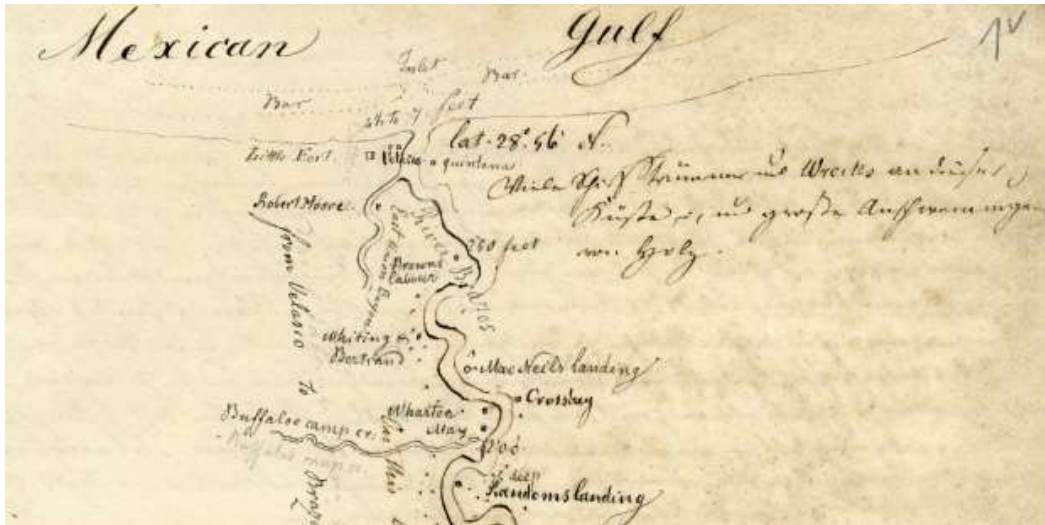 Mexican Gulf
Inlet
Bar
Bar
4 to 7 feet
lat. 28° 56' N.
Little Fort
Velasco
quintana
Viele Schiff Trümmer und Wrecks an dieser
Küste, und große Anschwemmungen
von Holz.
Robert Moore
East Union Bayou
River Brazos
250 feet
Browns
labour
from Velasco to Braz
Whiting &
Bertrand
Mac Neils landing
Crosby
Wharton
May
Buffaloe camp cr:
Buffaloe camp cr.
deep
Randoms landing